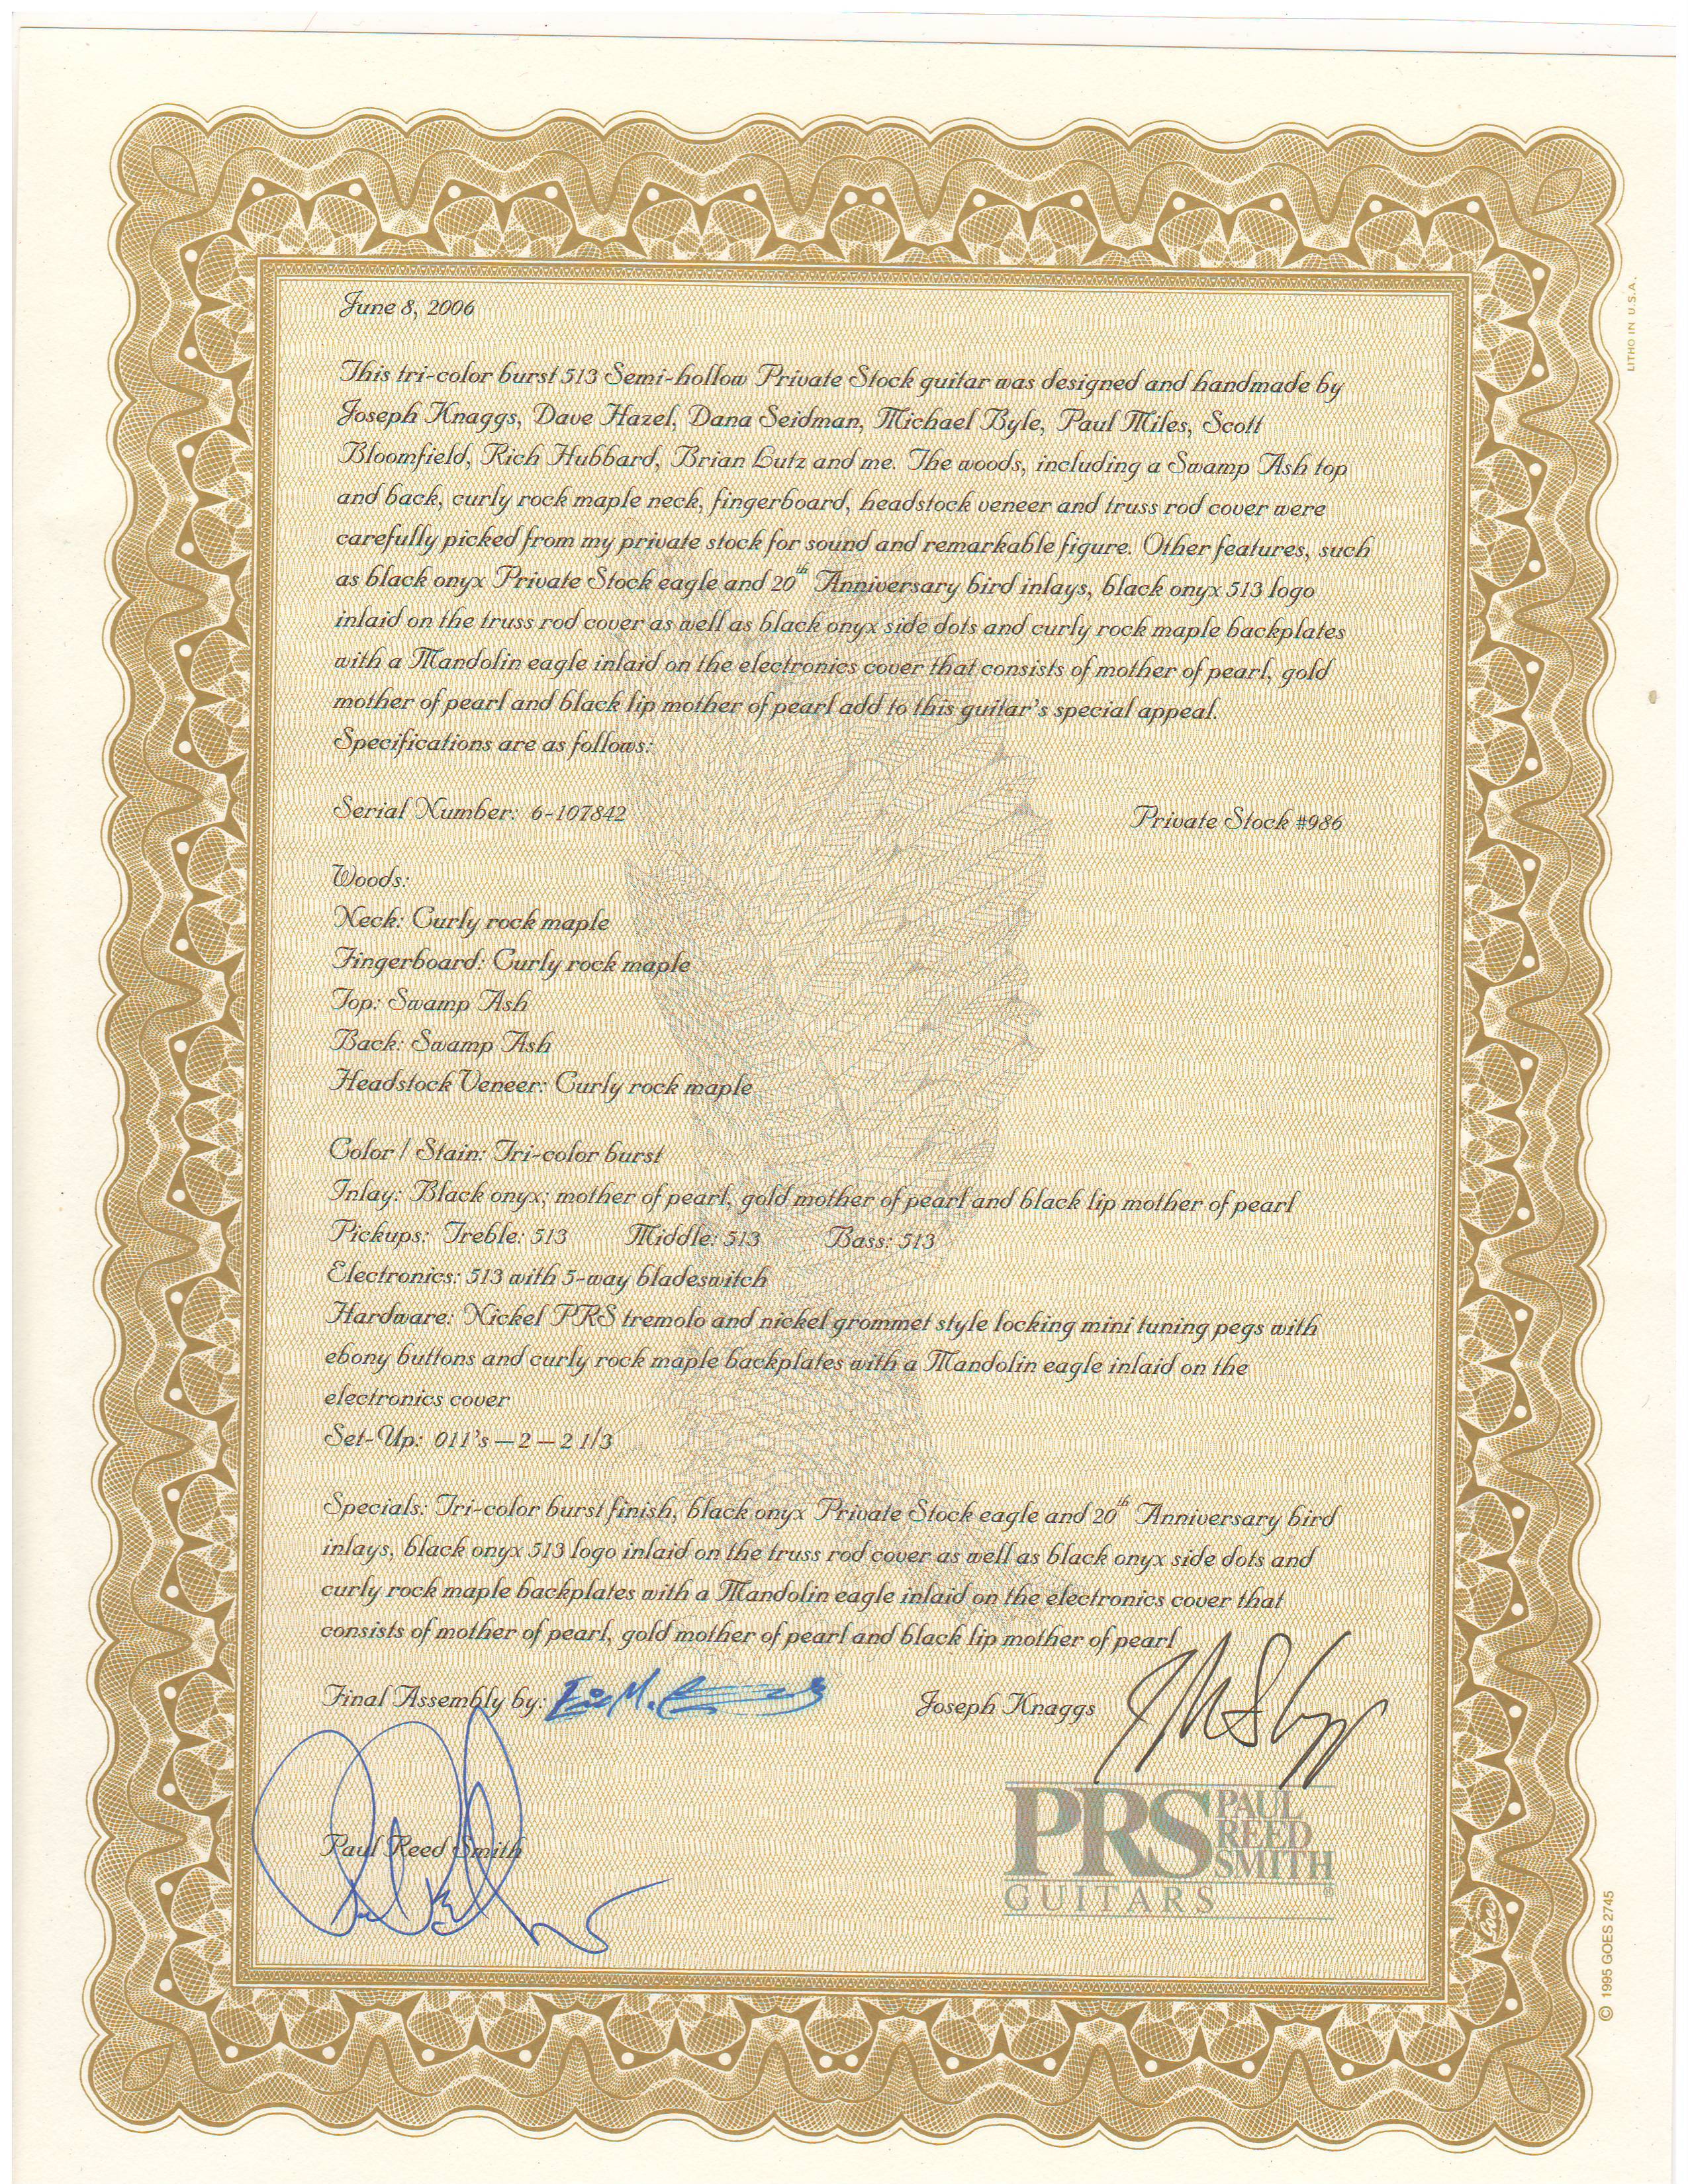 June 8, 2006
This tri-color burst 513 Semi-hollow Private Stock guitar was designed and handmade by
Joseph Knaggs, Dave Hazel, Dana Seidman, Michael Byle, Paul Miles, Scott
Bloomfield, Rich Hubbard, Brian Lutz and me. The woods, including a Swamp Ash top
and back, curly rock maple neck, fingerboard, headstock veneer and truss rod cover were
carefully picked from my private stock for sound and remarkable figure. Other features, such
as black onyx Private Stock eagle and 20th Anniversary bird inlays, black onyx 513 logo
inlaid on the truss rod cover as well as black onyx side dots and curly rock maple backplates
with a Mandolin eagle inlaid on the electronics cover that consists of mother of pearl, gold
mother of pearl and black lip mother of pearl add to this guitar's special appeal.
Specifications are as follows:
Serial Number: 6-107842 Private Stock #986
Woods:
Neck: Curly rock maple
Fingerboard: Curly rock maple
Top: Swamp Ash
Back: Swamp Ash
Headstock Veneer: Curly rock maple
Color / Stain: Tri-color burst
Inlay: Black onyx; mother of pearl, gold mother of pearl and black lip mother of pearl
Pickups: Treble: 513 Middle: 513 Bass: 513
Electronics: 513 with 5-way bladeswitch
Hardware: Nickel PRS tremolo and nickel grommet style locking mini tuning pegs with
ebony buttons and curly rock maple backplates with a Mandolin eagle inlaid on the
electronics cover
Set-Up: 011's – 2 – 2 1/3
Specials: Tri-color burst finish, black onyx Private Stock eagle and 20th Anniversary bird
inlays, black onyx 513 logo inlaid on the truss rod cover as well as black onyx side dots and
curly rock maple backplates with a Mandolin eagle inlaid on the electronics cover that
consists of mother of pearl, gold mother of pearl and black lip mother of pearl
Final Assembly by: Joseph Knaggs
Paul Reed Smith
PRS PAUL
REED
SMITH
GUITARS ®
LITHO IN U.S.A.
© 1995 GOES 2745